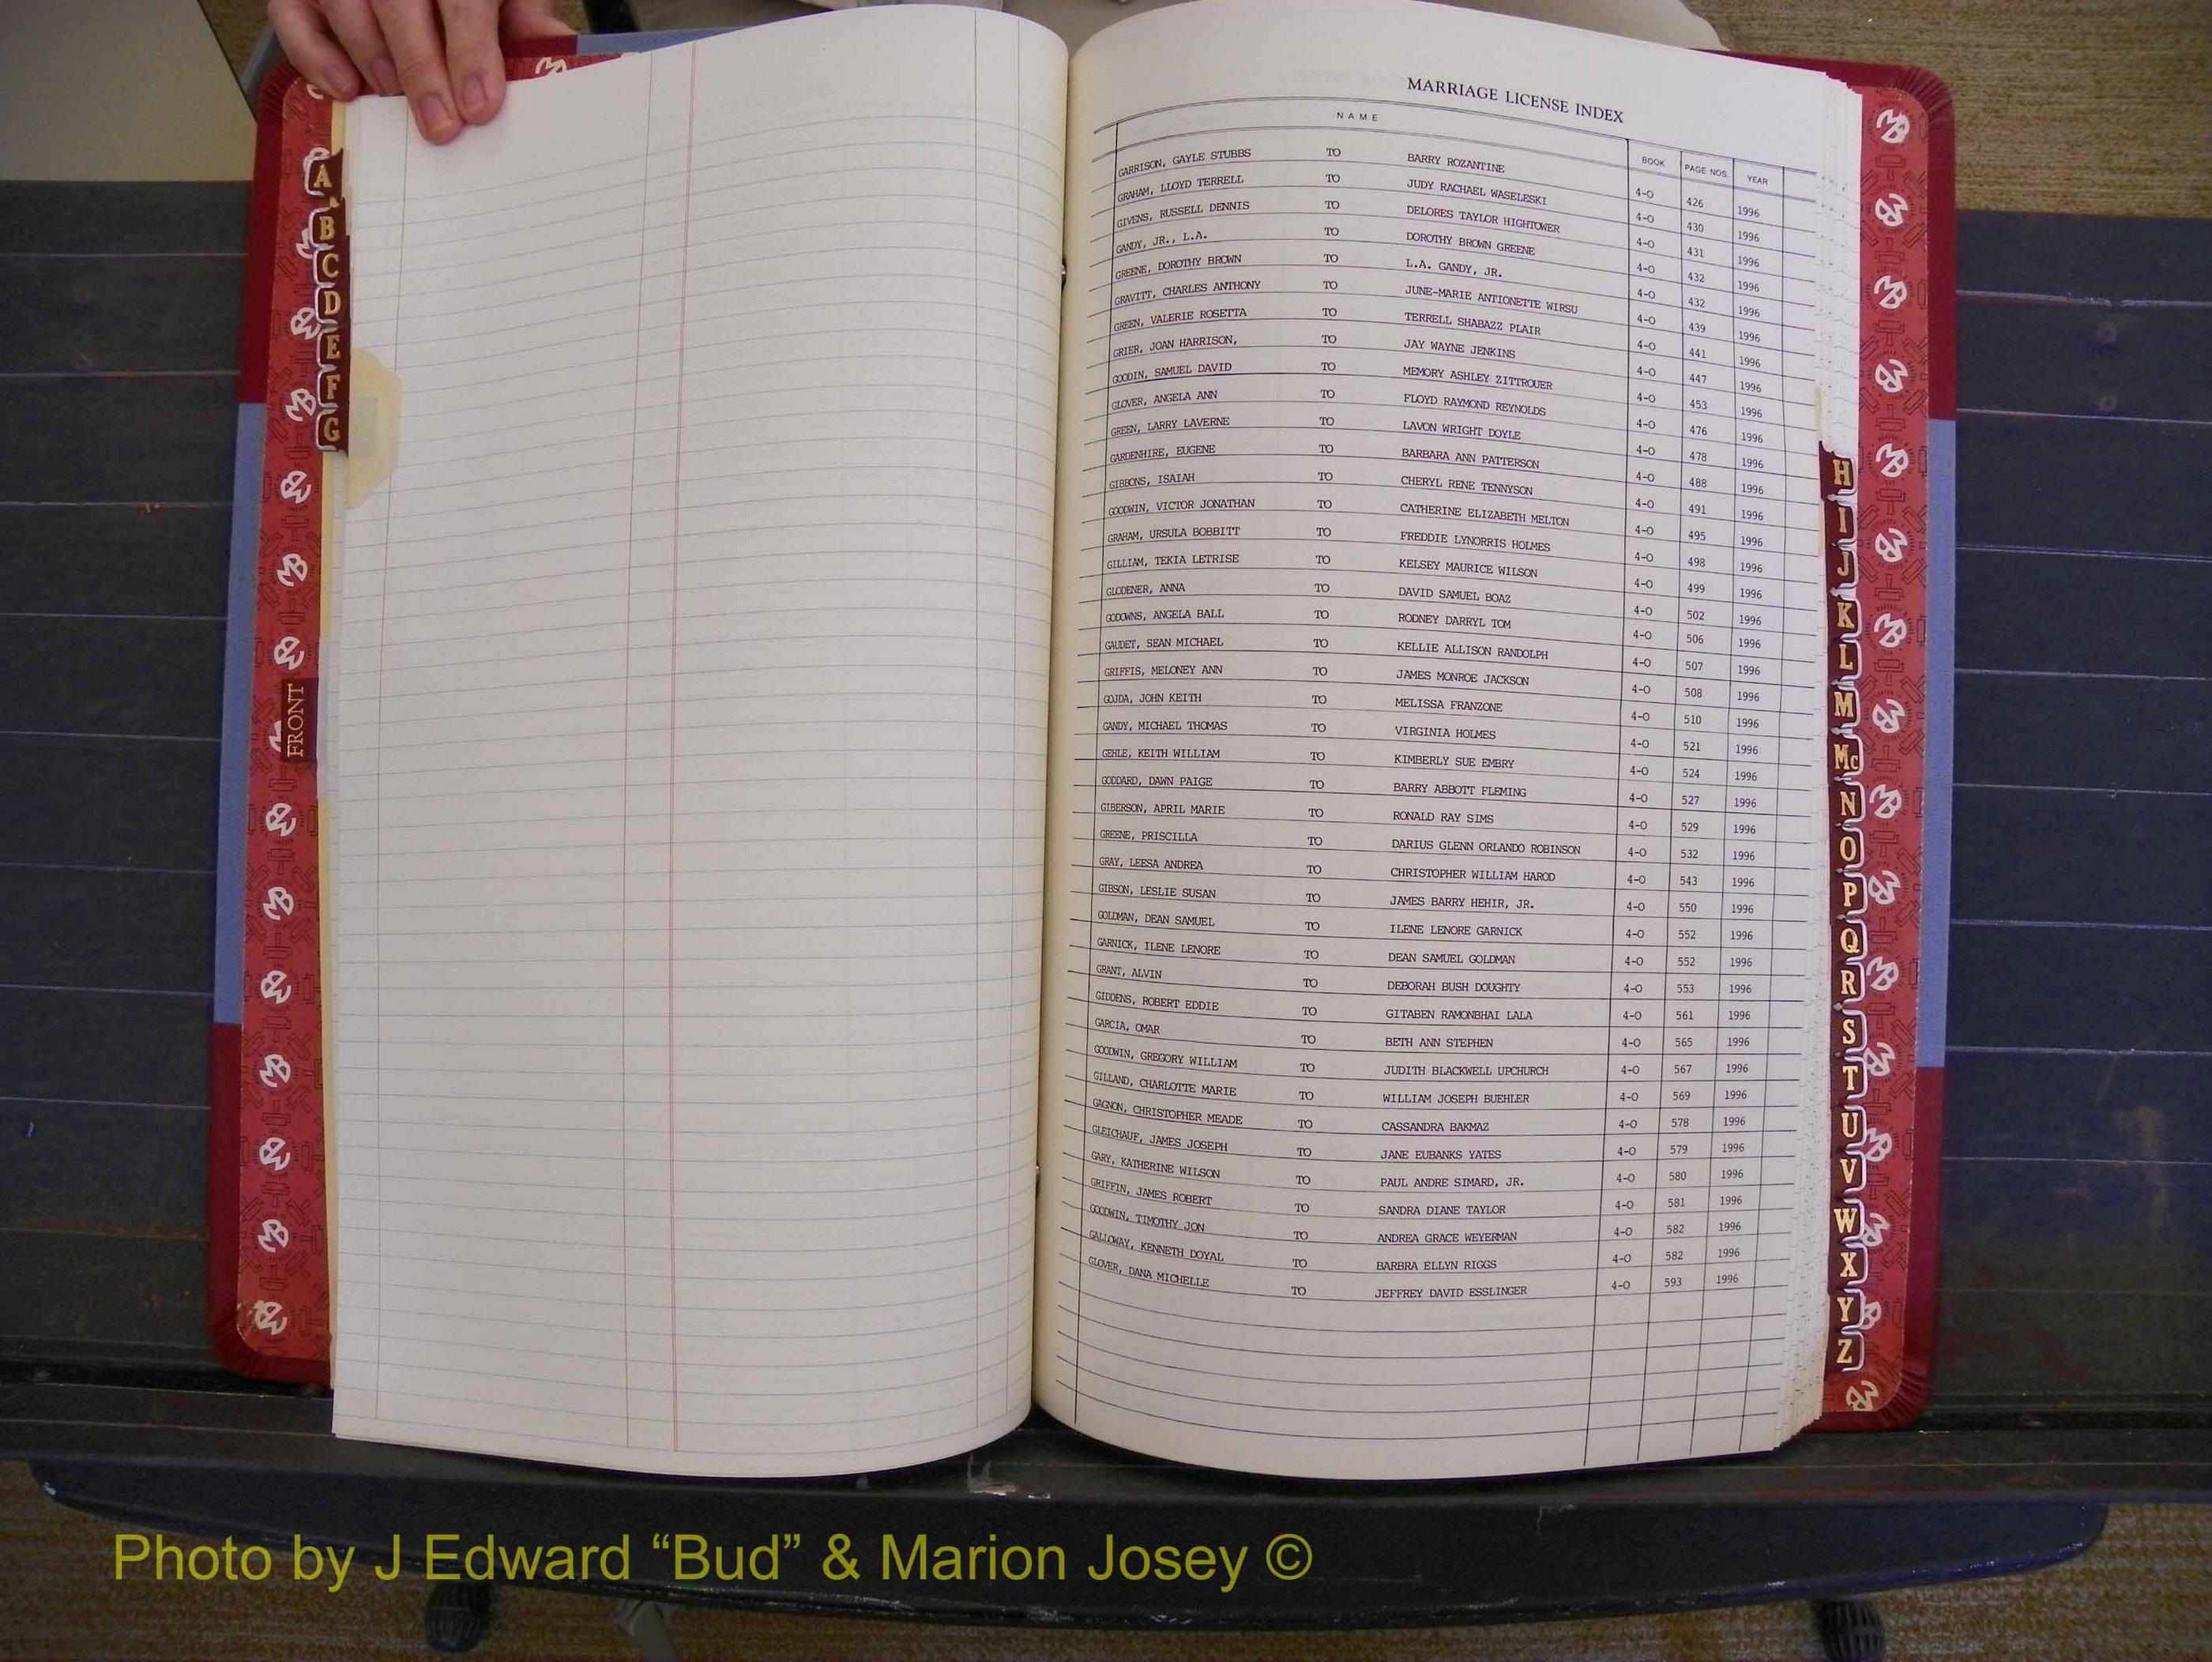 MARRIAGE LICENSE INDEX
NAME BOOK PAGE NOS. YEAR
GARRISON, GAYLE STUBBS TO BARRY ROZANTINE 4-O 426 1996
GRAHAM, LLOYD TERRELL TO JUDY RACHAEL WASELESKI 4-O 430 1996
GIVENS, RUSSELL DENNIS TO DELORES TAYLOR HIGHTOWER 4-O 431 1996
GANDY, JR., L.A. TO DOROTHY BROWN GREENE 4-O 432 1996
GREENE, DOROTHY BROWN TO L.A. GANDY, JR. 4-O 432 1996
GRAVITT, CHARLES ANTHONY TO JUNE-MARIE ANTIONETTE WIRSU 4-O 439 1996
GREEN, VALERIE ROSETTA TO TERRELL SHABAZZ PLAIR 4-O 441 1996
GRIER, JOAN HARRISON, TO JAY WAYNE JENKINS 4-O 447 1996
GOODIN, SAMUEL DAVID TO MEMORY ASHLEY ZITTROUER 4-O 453 1996
GLOVER, ANGELA ANN TO FLOYD RAYMOND REYNOLDS 4-O 476 1996
GREEN, LARRY LAVERNE TO LAVON WRIGHT DOYLE 4-O 478 1996
GARDENHIRE, EUGENE TO BARBARA ANN PATTERSON 4-O 488 1996
GIBBONS, ISAIAH TO CHERYL RENE TENNYSON 4-O 491 1996
GOODWIN, VICTOR JONATHAN TO CATHERINE ELIZABETH MELTON 4-O 495 1996
GRAHAM, URSULA BOBBITT TO FREDDIE LYNORRIS HOLMES 4-O 498 1996
GILLIAM, TEKIA LETRISE TO KELSEY MAURICE WILSON 4-O 499 1996
GLODENER, ANNA TO DAVID SAMUEL BOAZ 4-O 502 1996
GODOWNS, ANGELA BALL TO RODNEY DARRYL TOM 4-O 506 1996
GAUDET, SEAN MICHAEL TO KELLIE ALLISON RANDOLPH 4-O 507 1996
GRIFFIS, MELONEY ANN TO JAMES MONROE JACKSON 4-O 508 1996
GOJDA, JOHN KEITH TO MELISSA FRANZONE 4-O 510 1996
GANDY, MICHAEL THOMAS TO VIRGINIA HOLMES 4-O 521 1996
GEHLE, KEITH WILLIAM TO KIMBERLY SUE EMBRY 4-O 524 1996
GODDARD, DAWN PAIGE TO BARRY ABBOTT FLEMING 4-O 527 1996
GIBERSON, APRIL MARIE TO RONALD RAY SIMS 4-O 529 1996
GREENE, PRISCILLA TO DARIUS GLENN ORLANDO ROBINSON 4-O 532 1996
GRAY, LEESA ANDREA TO CHRISTOPHER WILLIAM HAROD 4-O 543 1996
GIBSON, LESLIE SUSAN TO JAMES BARRY HEHIR, JR. 4-O 550 1996
GOLDMAN, DEAN SAMUEL TO ILENE LENORE GARNICK 4-O 552 1996
GARNICK, ILENE LENORE TO DEAN SAMUEL GOLDMAN 4-O 552 1996
GRANT, ALVIN TO DEBORAH BUSH DOUGHTY 4-O 553 1996
GIDDENS, ROBERT EDDIE TO GITABEN RAMONBHAI LALA 4-O 561 1996
GARCIA, OMAR TO BETH ANN STEPHEN 4-O 565 1996
GOODWIN, GREGORY WILLIAM TO JUDITH BLACKWELL UPCHURCH 4-O 567 1996
GILLAND, CHARLOTTE MARIE TO WILLIAM JOSEPH BUEHLER 4-O 569 1996
GAGNON, CHRISTOPHER MEADE TO CASSANDRA BAKMAZ 4-O 578 1996
GLEICHAUF, JAMES JOSEPH TO JANE EUBANKS YATES 4-O 579 1996
GARY, KATHERINE WILSON TO PAUL ANDRE SIMARD, JR. 4-O 580 1996
GRIFFIN, JAMES ROBERT TO SANDRA DIANE TAYLOR 4-O 581 1996
GOODWIN, TIMOTHY JON TO ANDREA GRACE WEYERMAN 4-O 582 1996
GALLOWAY, KENNETH DOYAL TO BARBRA ELLYN RIGGS 4-O 582 1996
GLOVER, DANA MICHELLE TO JEFFREY DAVID ESSLINGER 4-O 593 1996
A
B
C
D
E
F
G
FRONT
H
I
J
K
L
M
Mc
N
O
P
Q
R
S
T
U
V
W
X
Y
Z
Photo by J Edward “Bud” & Marion Josey ©